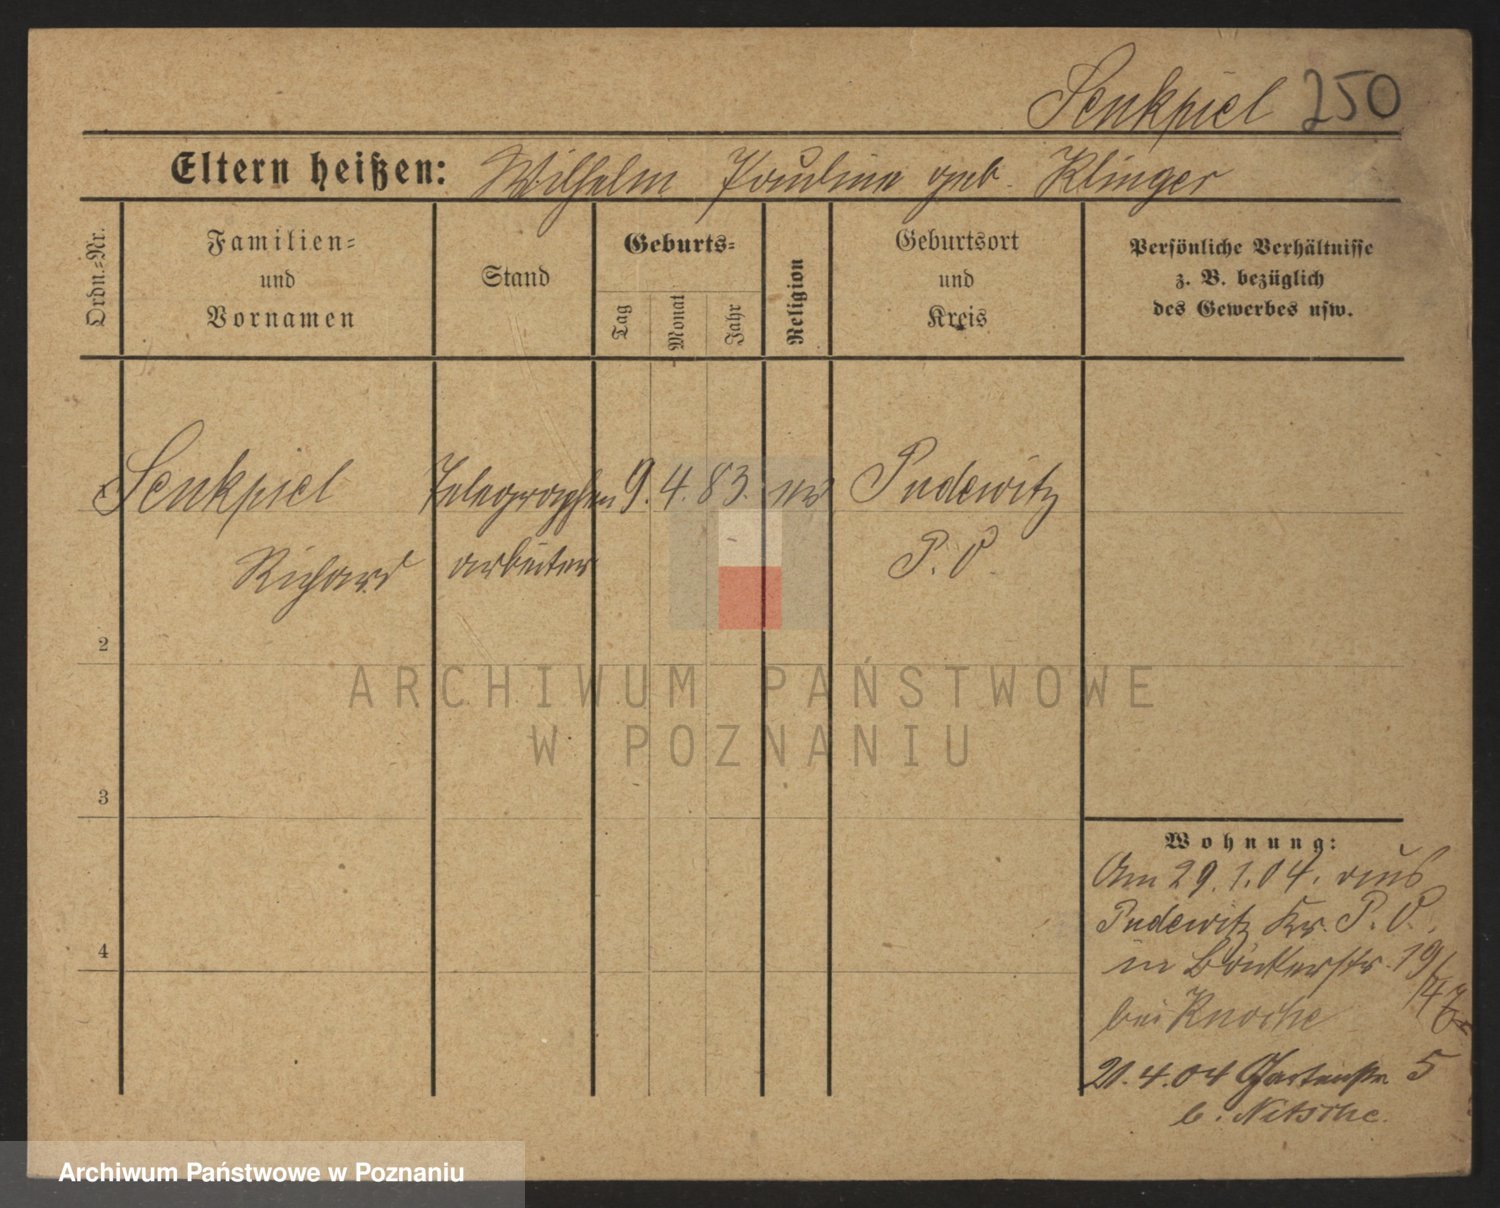 Senkpiel 250
Eltern heißen: Wilhelm Pauline geb. Klinger
Ordn.-Nr.
Familien-
und
Vornamen
Stand
Geburts-
Tag
Monat
Jahr
Religion
Geburtsort
und
Kreis
Persönliche Verhältnisse
z. B. bezüglich
des Gewerbes usw.
Senkpiel Telegraphen 9. 4. 83. ev Pudewitz
Richard arbeiter P. O.
2
3
4
Wohnung:
Am 29.1.04. aus
Pudewitz Kr. P. O.
in Bäckerstr. 19/
bei Knoche
21.4.04 Gartenstr 5
b. Nitsche.
ARCHIWUM PAŃSTWOWE
W POZNANIU
Archiwum Państwowe w Poznaniu